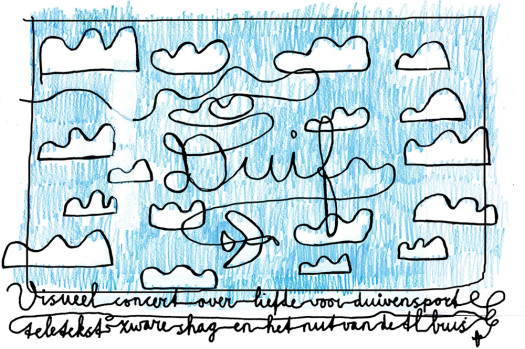 Duif
Visueel concert over liefde voor duivensport
teletekst zware shag en het nut van de tl buis